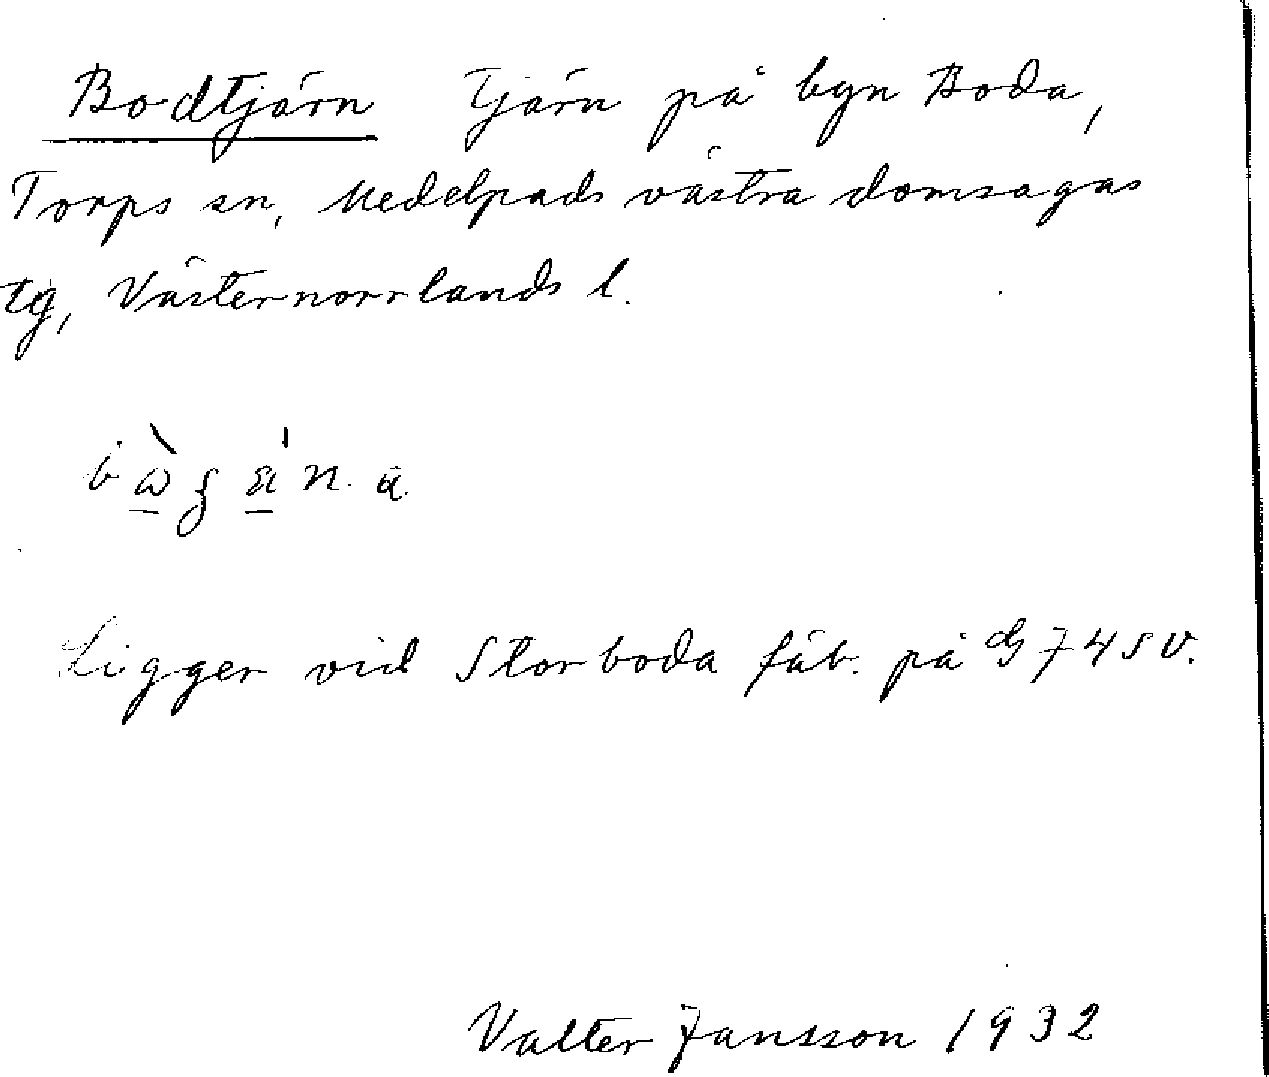 Bodtjärn Tjärn på byn Boda,
Torps sn, Medelpads västra domsagas
tg, Västernorrlands l.
Ligger vid Storboda fäb. på G 74 SV.
Valter Jansson 1932